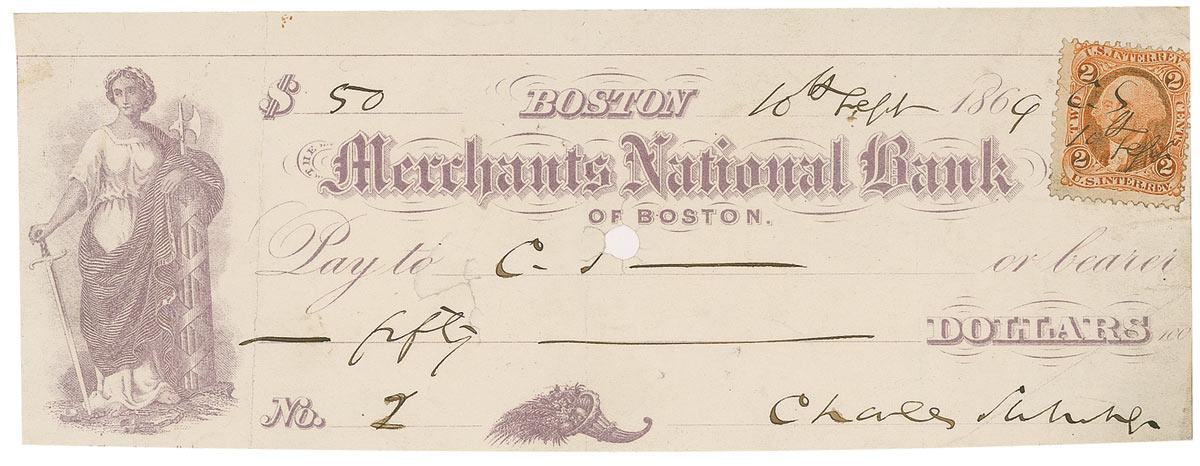 $ 50 BOSTON 10th Sept 1869
THE Merchants National Bank
OF BOSTON.
Pay to C. or bearer
fifty DOLLARS
No. 2
Charles
U.S. INTER. REV.
2 2
TWO CENTS
C S
10 Sept
2 2
U.S. INTER. REV.